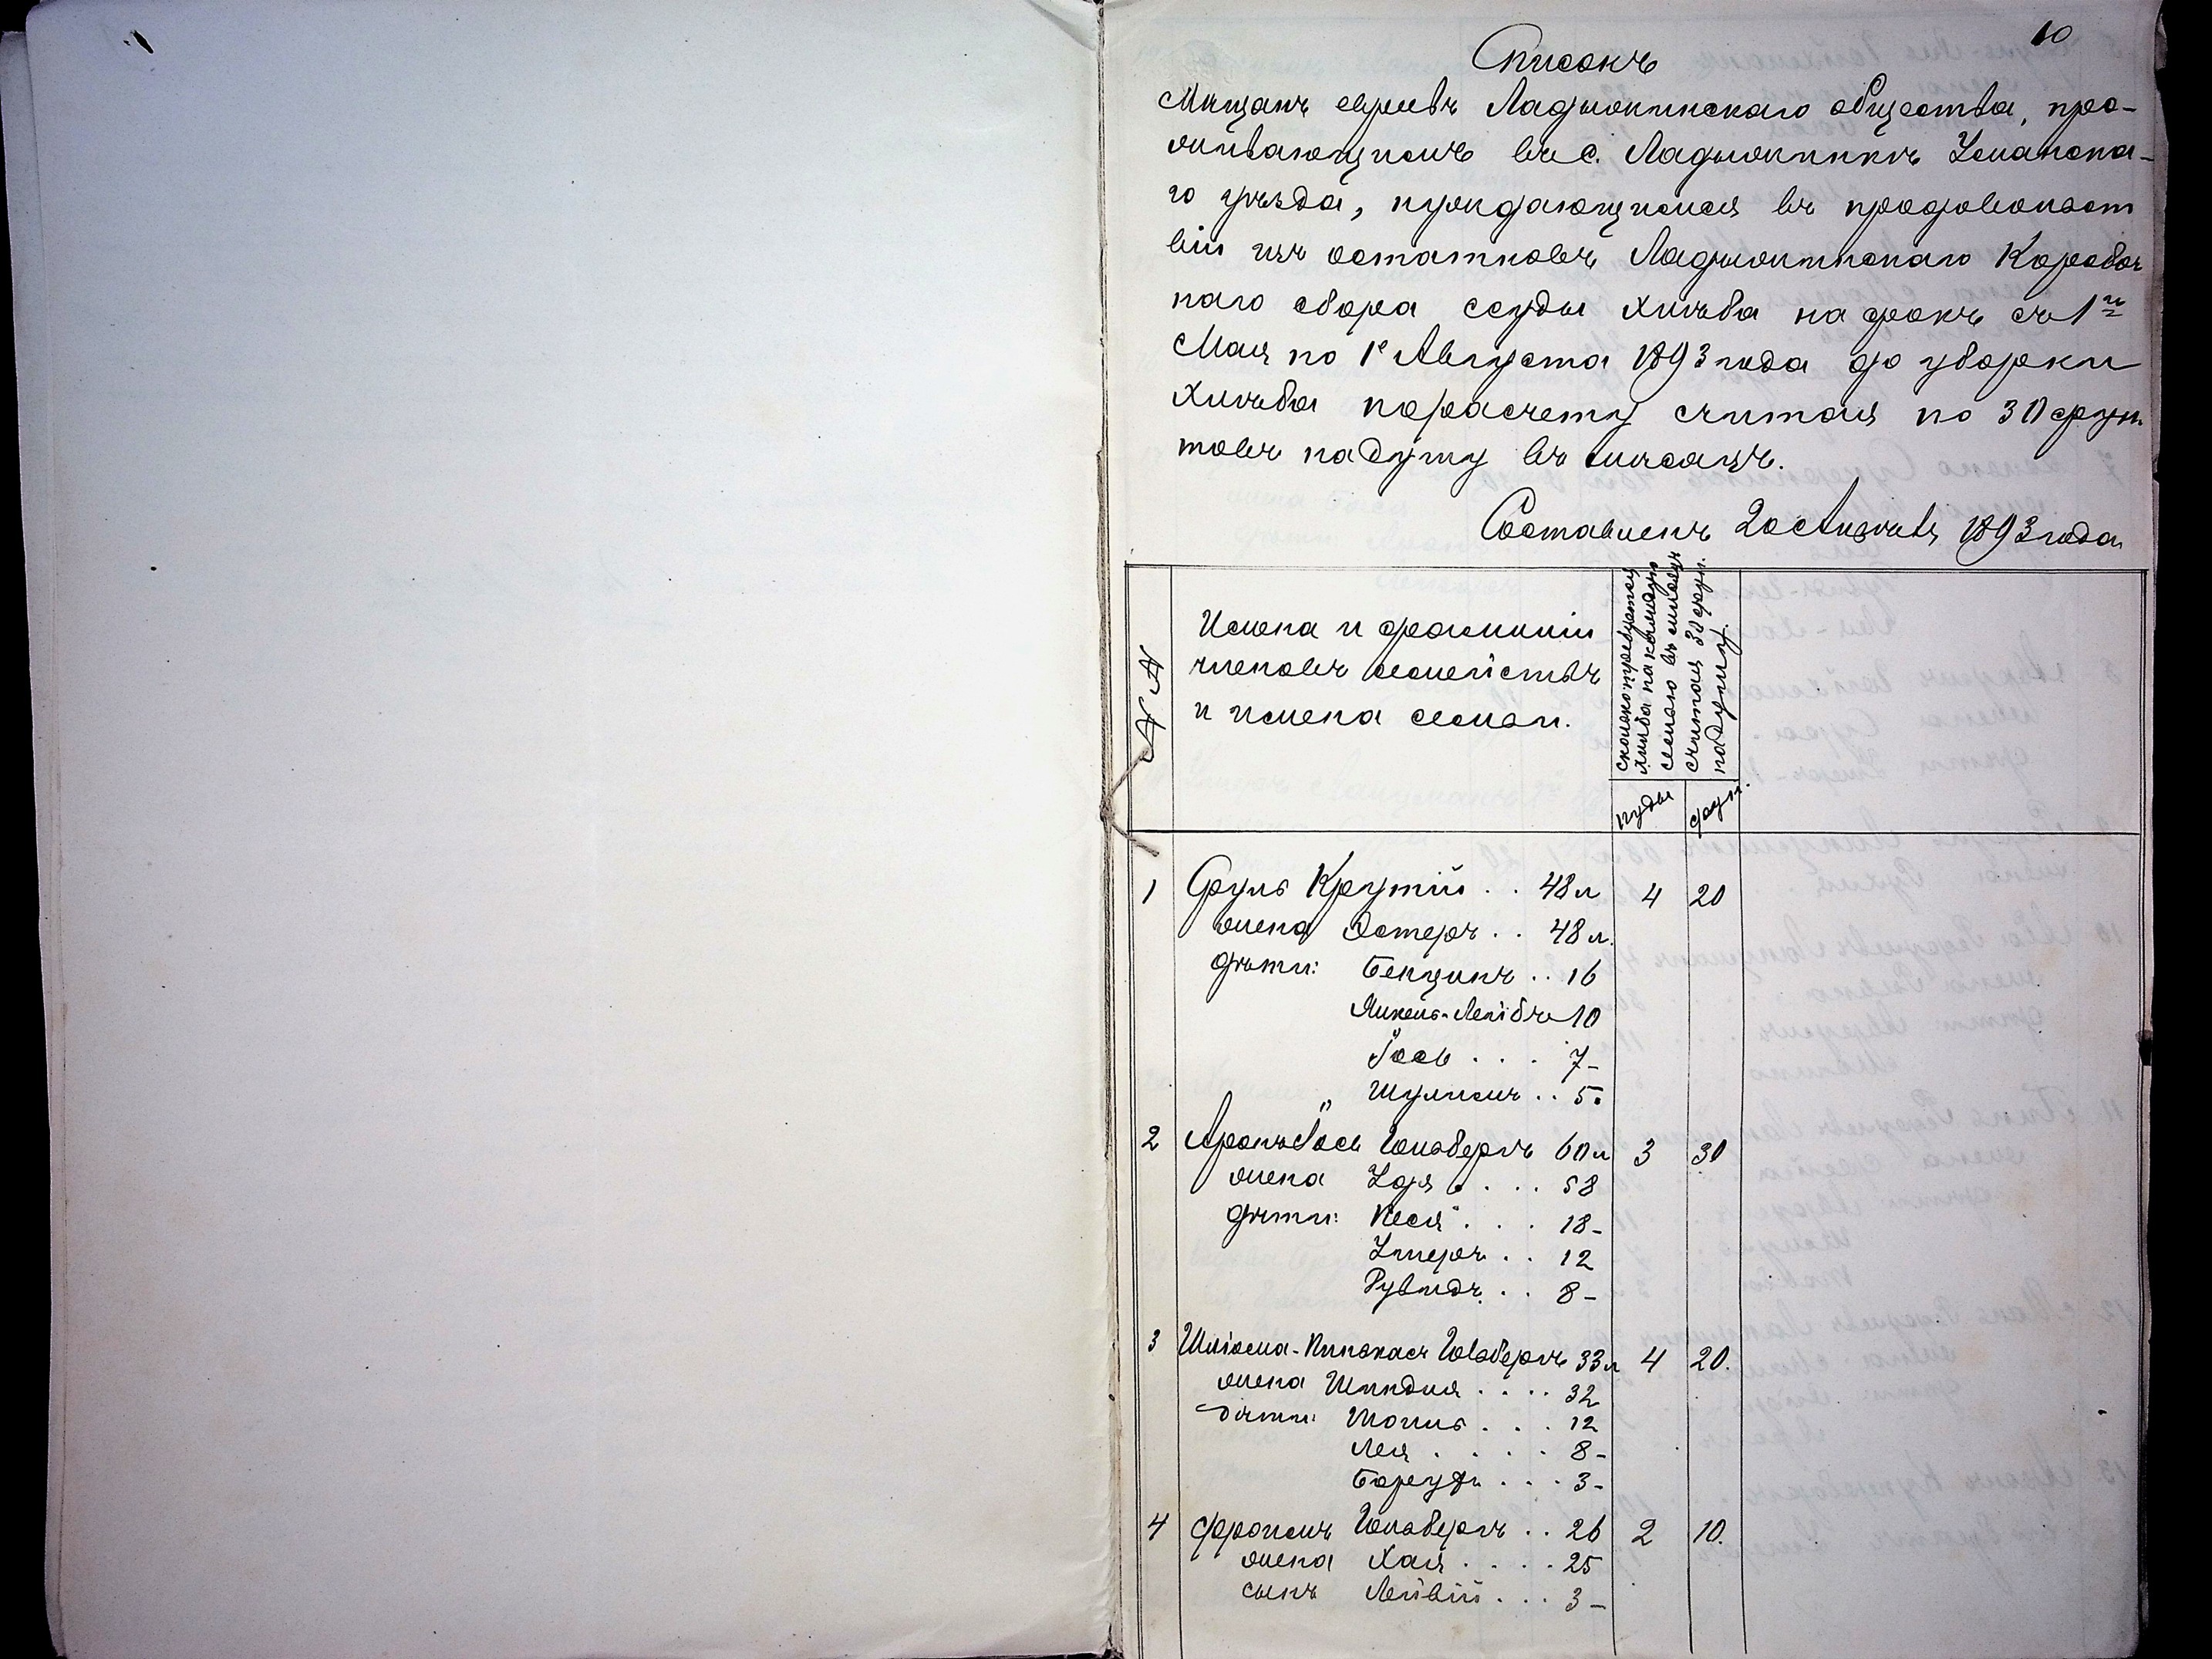 10
Списокъ
Мѣщанъ евреевъ Ладыжинскаго общества, про-
живающихъ въ с. Ладыжинкѣ Уманска-
го уѣзда, нуждающихся въ продовольст
віи изъ остатковъ Ладыжинскаго Коробоч
наго сбора ссуды хлѣба на срокъ съ 1го
Мая по 1е Августа 1893 года до уборки
хлѣба порасчету считая по 30 фун
товъ на душу въ мѣсяцъ.
Составленъ 20 Апрѣля 1893 года
№ №
Имена и фамиліи
членовъ семействъ
и имена семьи.
сколько требуется
хлѣба на каждую
семью въ мѣсяцъ
считая 30 фун.
на душу.
пуды фун.
1 Сруль Крутій . . 48 л 4 20
жена Эстеръ . . 48 л.
дѣти: Бенционъ . . 16
Янкель-Лейбъ 10
Іось . . . 7 -
" Шулимъ . . 5.
2 Аронъ Іось Гольбергъ 60 л 3 30
жена Удя . . . 58
дѣти: Песя . . . 18 -
Умеръ . . 12
Рувидъ . . 8 -
3 Шліома-Пинькасъ Гольбергъ 33 л 4 20.
жена Шиндля . . . . 32
дѣти: . . . 12
Лея . . . . 8 -
Борухъ . . . 3 -
4 Фроимъ Гольбергъ . . 26 2 10.
жена Хая . . . . 25
сынъ Лейвій . . . 3 -